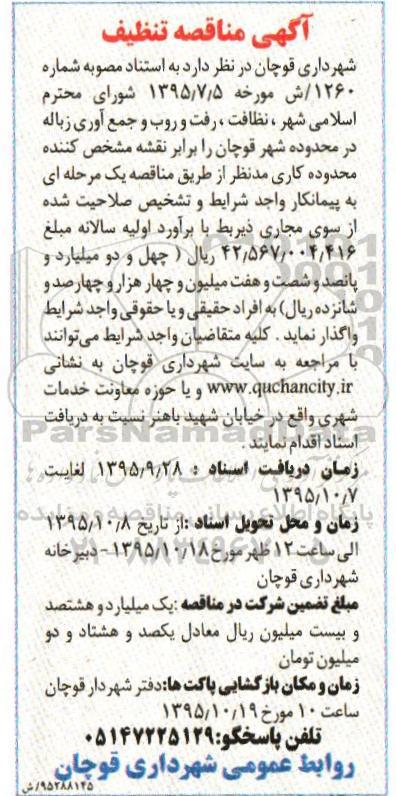 آگهی مناقصه تنظیف
شهرداری قوچان در نظر دارد به استناد مصوبه شماره
۱۲۶۰/ش مورخه ۱۳۹۵٫۷٫۵ شورای محترم
اسلامی شهر ، نظافت ، رفت و روب و جمع آوری زباله
در محدوده شهر قوچان را برابر نقشه مشخص کننده
محدوده کاری مدنظر از طریق مناقصه یک مرحله ای
به پیمانکار واجد شرایط و تشخیص صلاحیت شده
از سوی مجاری ذیربط با برآورد اولیه سالانه مبلغ
۴۲٫۵۶۷٫۰۰۴٫۴۱۶ ریال ( چهل و دو میلیارد و
پانصد و شصت و هفت میلیون و چهار هزار و چهارصد و
شانزده ریال) به افراد حقیقی و یا حقوقی واجد شرایط
واگذار نماید . کلیه متقاضیان واجد شرایط می‌توانند
با مراجعه به سایت شهرداری قوچان به نشانی
www.quchancity.ir و یا حوزه معاونت خدمات
شهری واقع در خیابان شهید باهنر نسبت به دریافت
اسناد اقدام نمایند .
زمان دریافت اسناد : ۱۳۹۵٫۹٫۲۸ لغایت
۱۳۹۵٫۱۰٫۷
زمان و محل تحویل اسناد :از تاریخ ۱۳۹۵٫۱۰٫۸
الی ساعت ۱۲ ظهر مورخ ۱۳۹۵٫۱۰٫۱۸ - دبیرخانه
شهرداری قوچان
مبلغ تضمین شرکت در مناقصه :یک میلیارد و هشتصد
و بیست میلیون ریال معادل یکصد و هشتاد و دو
میلیون تومان
زمان و مکان بازگشایی پاکت ها:دفتر شهردار قوچان
ساعت ۱۰ مورخ ۱۳۹۵٫۱۰٫۱۹
تلفن پاسخگو:۰۵۱۴۷۲۲۵۱۲۹
روابط عمومی شهرداری قوچان
۹۵۲۸۸۱۲۵/ش
ParsNamadData